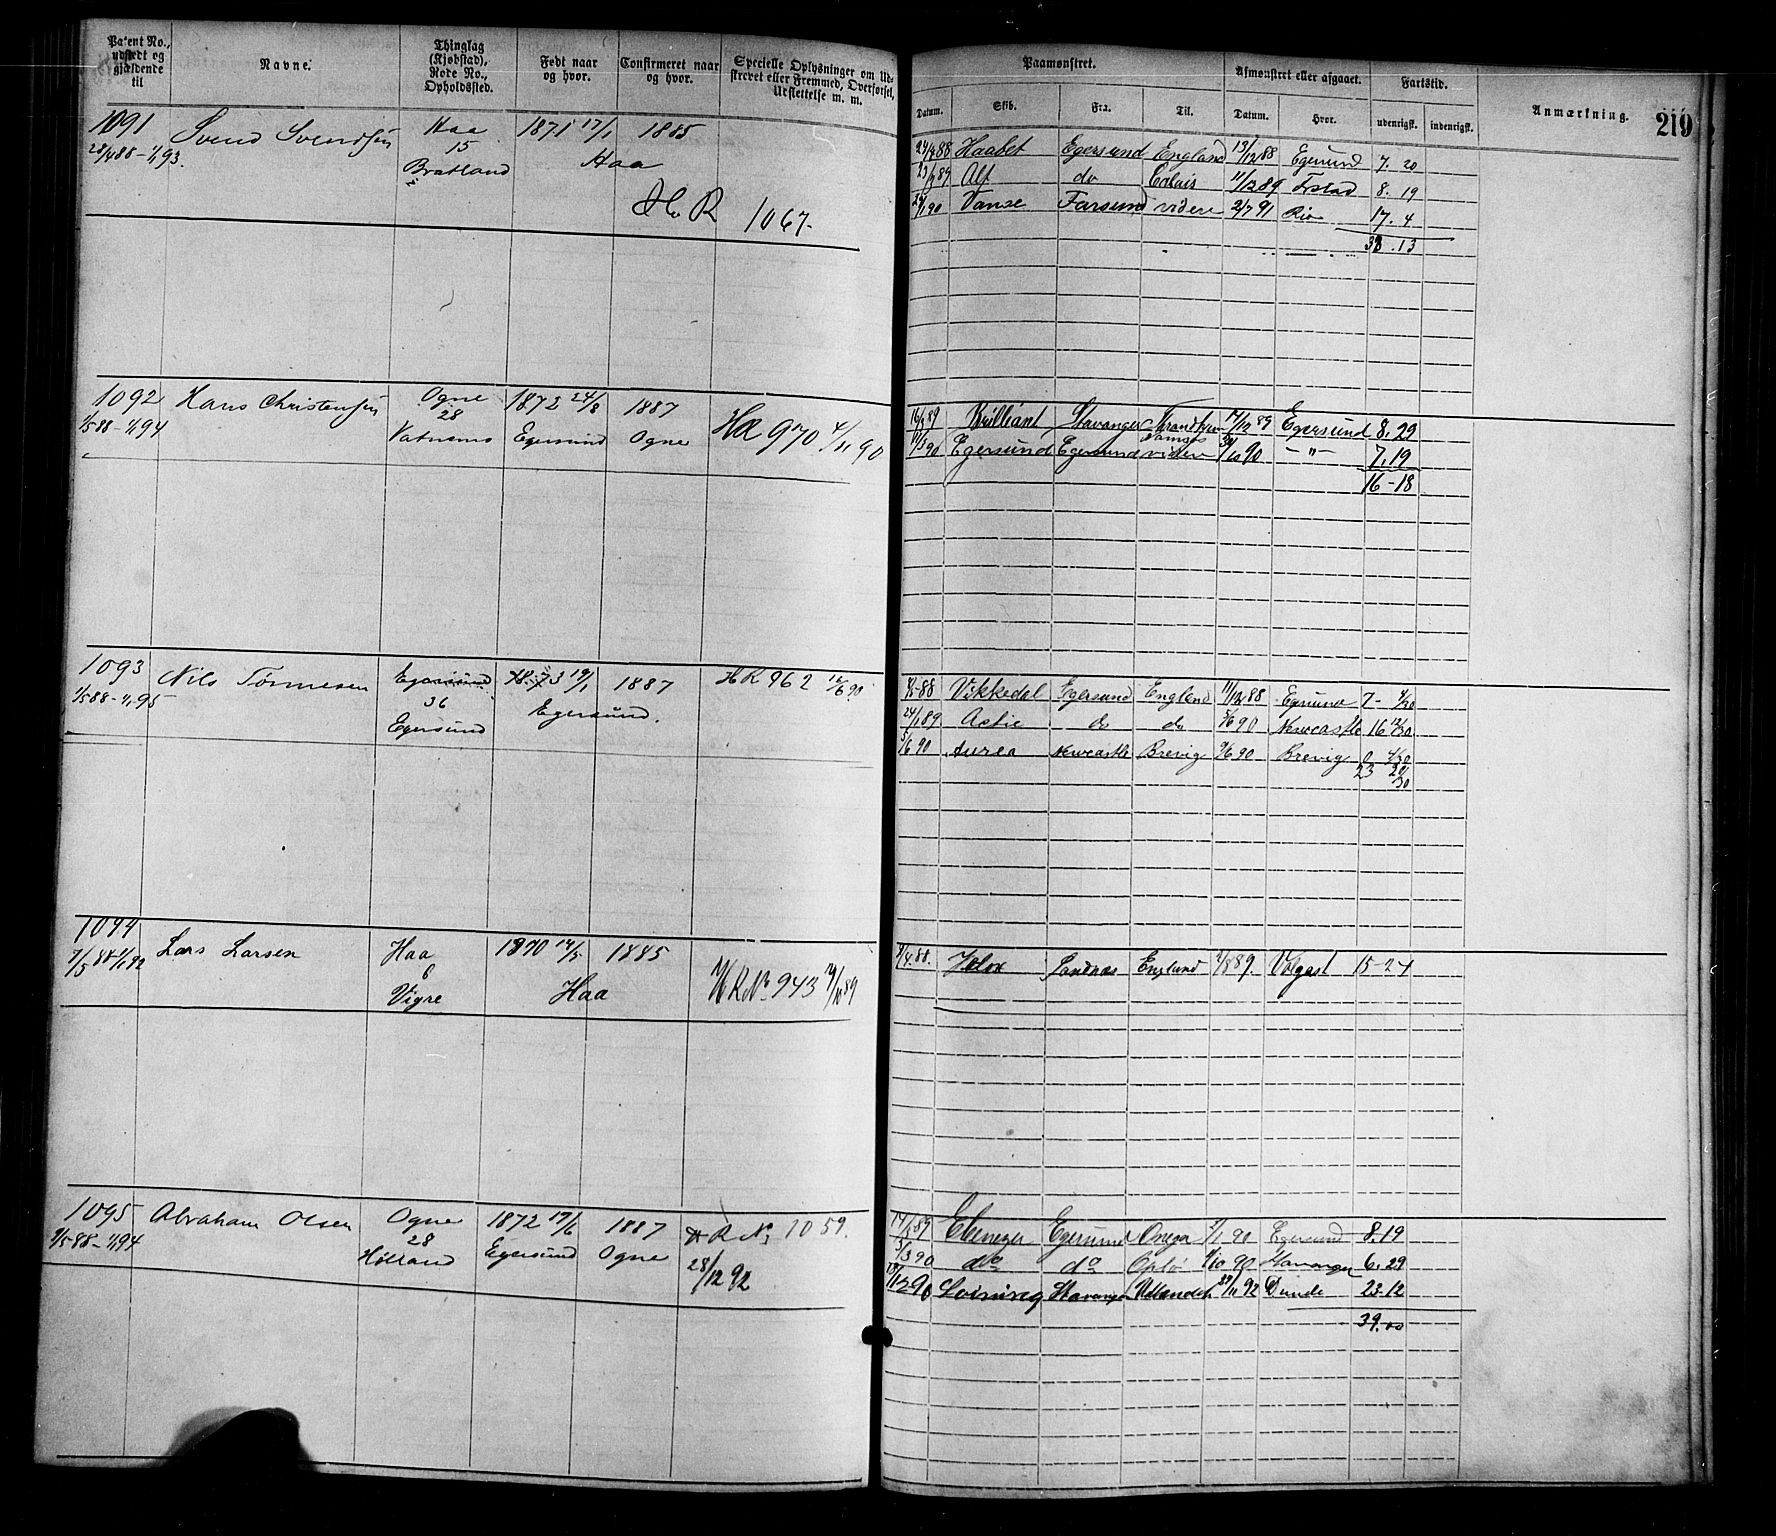 Patent No., udstedt og gjældende til
Navne.
Thinglag (Kjøbstad), Rode No., Opholdssted.
Født naar og hvor.
Confirmeret naar og hvor.
Specielle Oplysninger om Udskrevet eller Fremmed, Overførsel, Udslettelse m. m.
Paamønstret.
Afmønstret eller afgaaet.
Fartstid.
Anmærkning.
210
Datum.
Skib.
Fra.
Til.
Datum.
Hvor.
udenrigsk.
indenrigsk.
1091 Svend Svendsen Haa 1871 17/1 1885
28/4 88 - 1/1 93. 15 Haa
Bratland
H. R 1067.
24/4 88 Haabet Egersund England 13/12 88 Egersund 7. 20
89 Alf do Calais 11/12 89 8. 19
90 Vanse Farsund videre 2/7 91 Rio 17. 4
38. 13
1092 Hans Christensen Ogne 1872 24/8 1887
1/5 88 - 1/1 94 28 Egersund Ogne HR 970 4/11 90
16/3 89 Brilliant Stavanger 17/12 89 Egersund 8. 29
11/3 90 Egersund Egersund videre 90 - " - 7. 19
16 - 18
1093 Nils Tønnesen Egersund 1873 19/1 1887 HR 962 12/6 90
1/5 88 - 1/1 95 36 Egersund.
Egersund
88 Vikkedal Egersund England 11/12 88 Egersund 7 - 4/30
24/1 89 Activ do do 5/6 90 Newcastle 16 12/30
5/6 90 Aurea Newcastle Brevig 9/6 90 Brevig 0 4/30
23 20/30
1094 Lars Larsen Haa 1870 14/5 1885
7/5 88 1/1 92 6 Haa HR No. 943 29/10 89
Vigre
88. Sandnæs England 89. Volgast 15 - 24
1095 Abraham Olsen Ogne 1872 17/6 1887 HR No. 1059.
9/5 88 - 1/1 94 28 Egersund Ogne
Hølland 28/12 92
89 Ebenezer Egersund Onega 90 Egersund 8. 19
5/3 90 do do 90 Stavanger 6. 29
90 Stavanger 92 Dunde 23. 12
39. 00